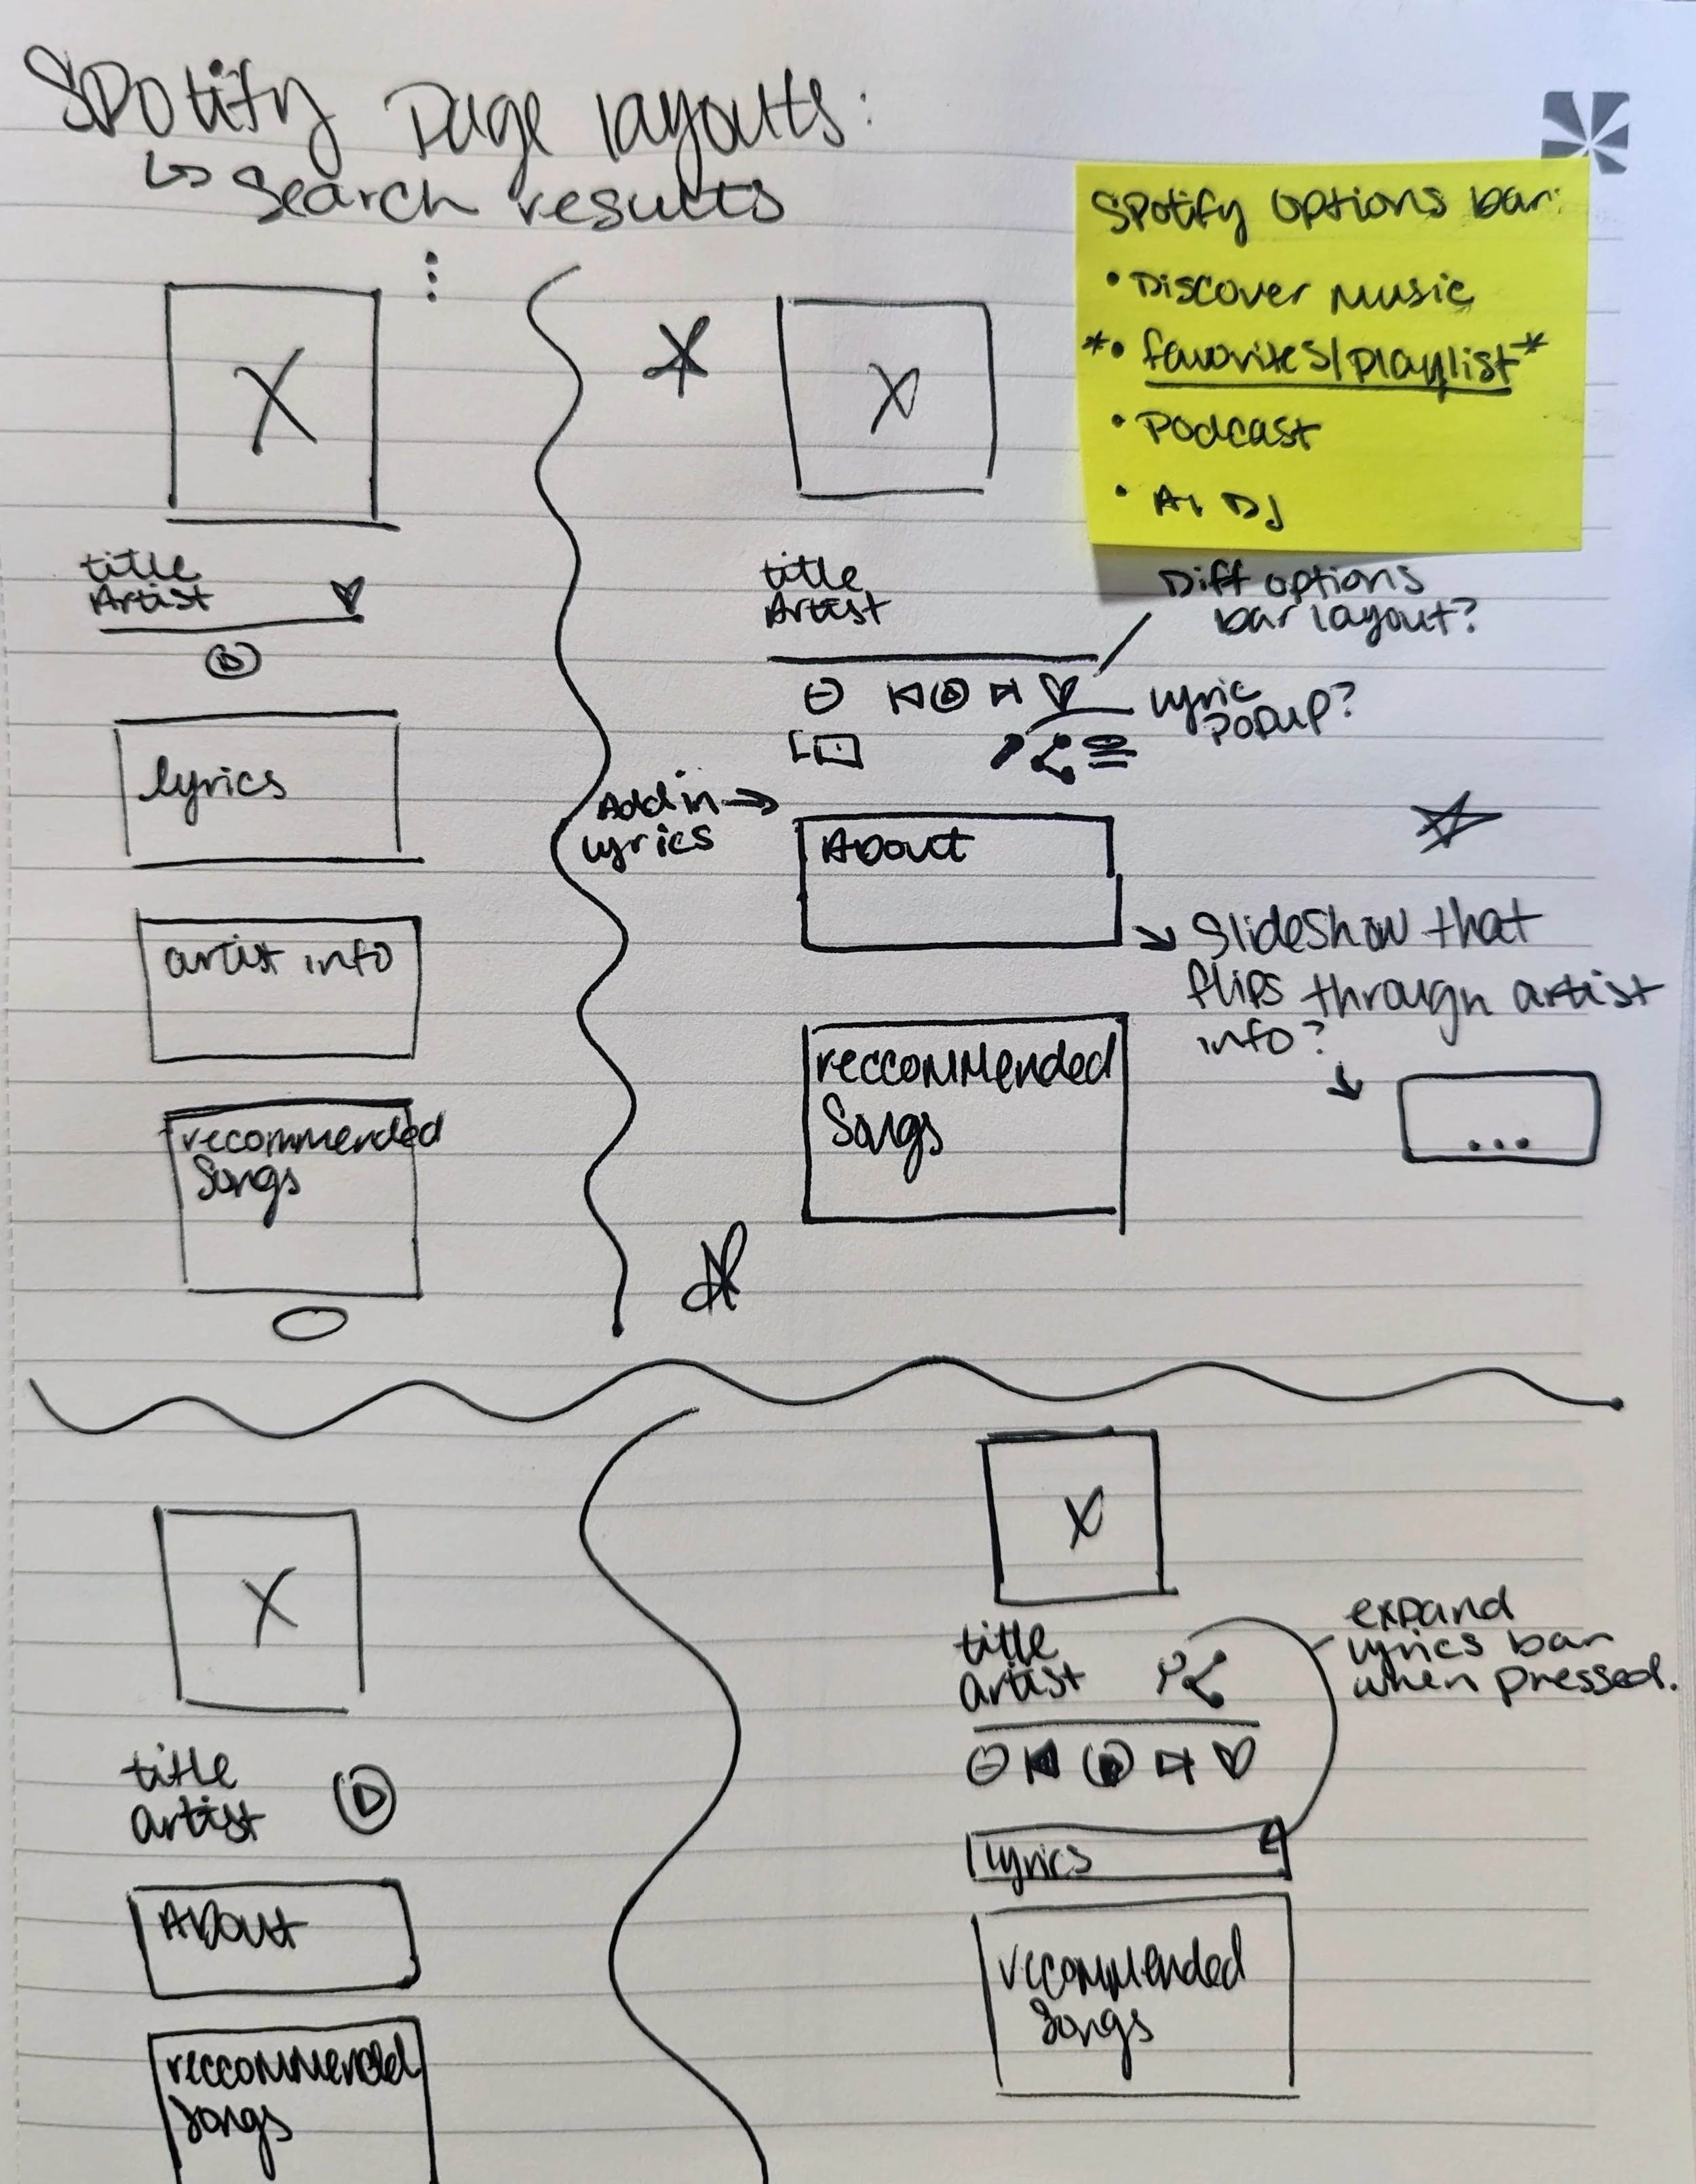 Spotify Page layouts:
↳ Search results
Spotify options bar:
• Discover Music
*• favorites/playlist*
• Podcast
• AI DJ
X
title
Artist
lyrics
artist info
recommended
Songs
X
title
Artist
Diff options
bar layout?
lyric
popup?
Add in →
lyrics
About
Slideshow that
flips through artist
info?
...
reccommended
Songs
X
title
artist
About
reccommended
Songs
X
title
artist
expand
lyrics bar
when pressed.
lyrics
recommended
Songs